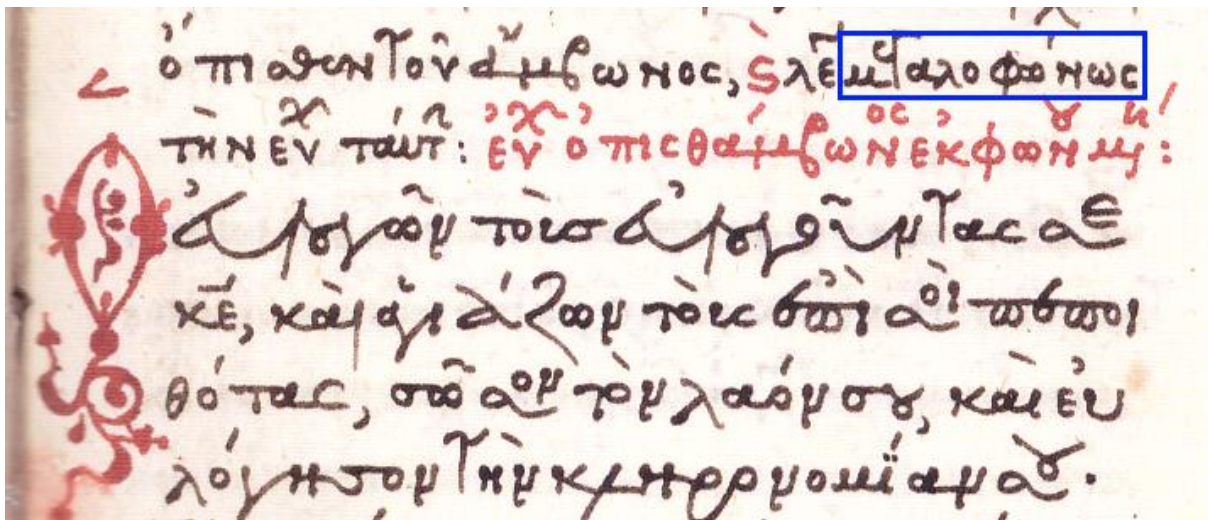 ὄπισθεν τοῦ ἄμβωνος, ς λέ μεγαλοφώνως
τὴν εὐχ ταύτ: εὐχ ὀπισθάμβωνος ἐκφωνουμ:
Ὁ εὐλογῶν τοὺς εὐλογοῦντας σε
κε, καὶ ἁγιάζων τοὺς ἐπὶ σοὶ πεποι
θότας, σῶσον τὸν λαόν σου, καὶ εὐ
λόγησον τὴν κληρονομίαν σου.